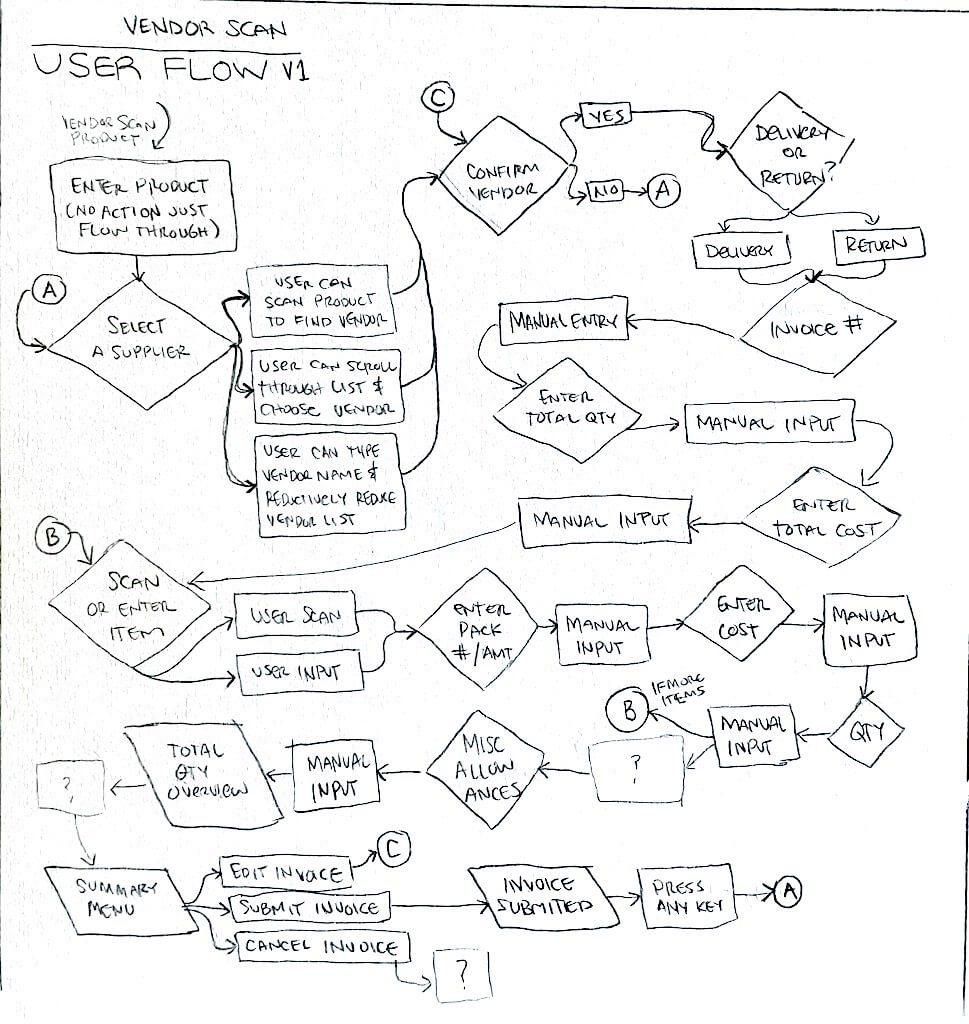 VENDOR SCAN
USER FLOW V1
VENDOR SCAN
PRODUCT
ENTER PRODUCT
(NO ACTION JUST
FLOW THROUGH)
A
SELECT
A SUPPLIER
USER CAN
SCAN PRODUCT
TO FIND VENDOR
USER CAN SCROLL
THROUGH LIST &
CHOOSE VENDOR
USER CAN TYPE
VENDOR NAME &
REDUCTIVELY REDUCE
VENDOR LIST
C
CONFIRM
VENDOR
YES
NO
A
DELIVERY
OR
RETURN?
DELIVERY
RETURN
INVOICE #
MANUAL ENTRY
ENTER
TOTAL QTY
MANUAL INPUT
ENTER
TOTAL COST
MANUAL INPUT
B
SCAN
OR ENTER
ITEM
USER SCAN
USER INPUT
ENTER
PACK
#/AMT
MANUAL
INPUT
ENTER
COST
MANUAL
INPUT
QTY
MANUAL
INPUT
IF MORE
ITEMS
B
?
MISC
ALLOW
ANCES
MANUAL
INPUT
TOTAL
QTY
OVERVIEW
?
SUMMARY
MENU
EDIT INVOICE
C
SUBMIT INVOICE
INVOICE
SUBMITED
PRESS
ANY KEY
A
CANCEL INVOICE
?